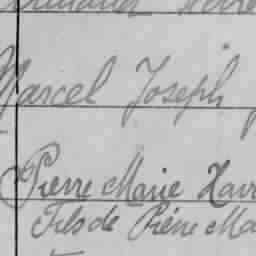 Marcel Joseph
Pierre Marie Xavi
Fils de Pière Ma